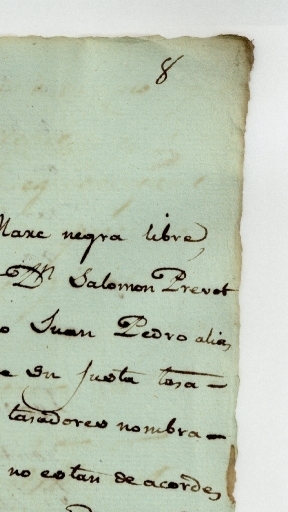 8
Mare negra libre,
Dn Salomon Prevot
o Juan Pedro alias
e su justa tasa-
tasadores nombra-
no estan de acordes